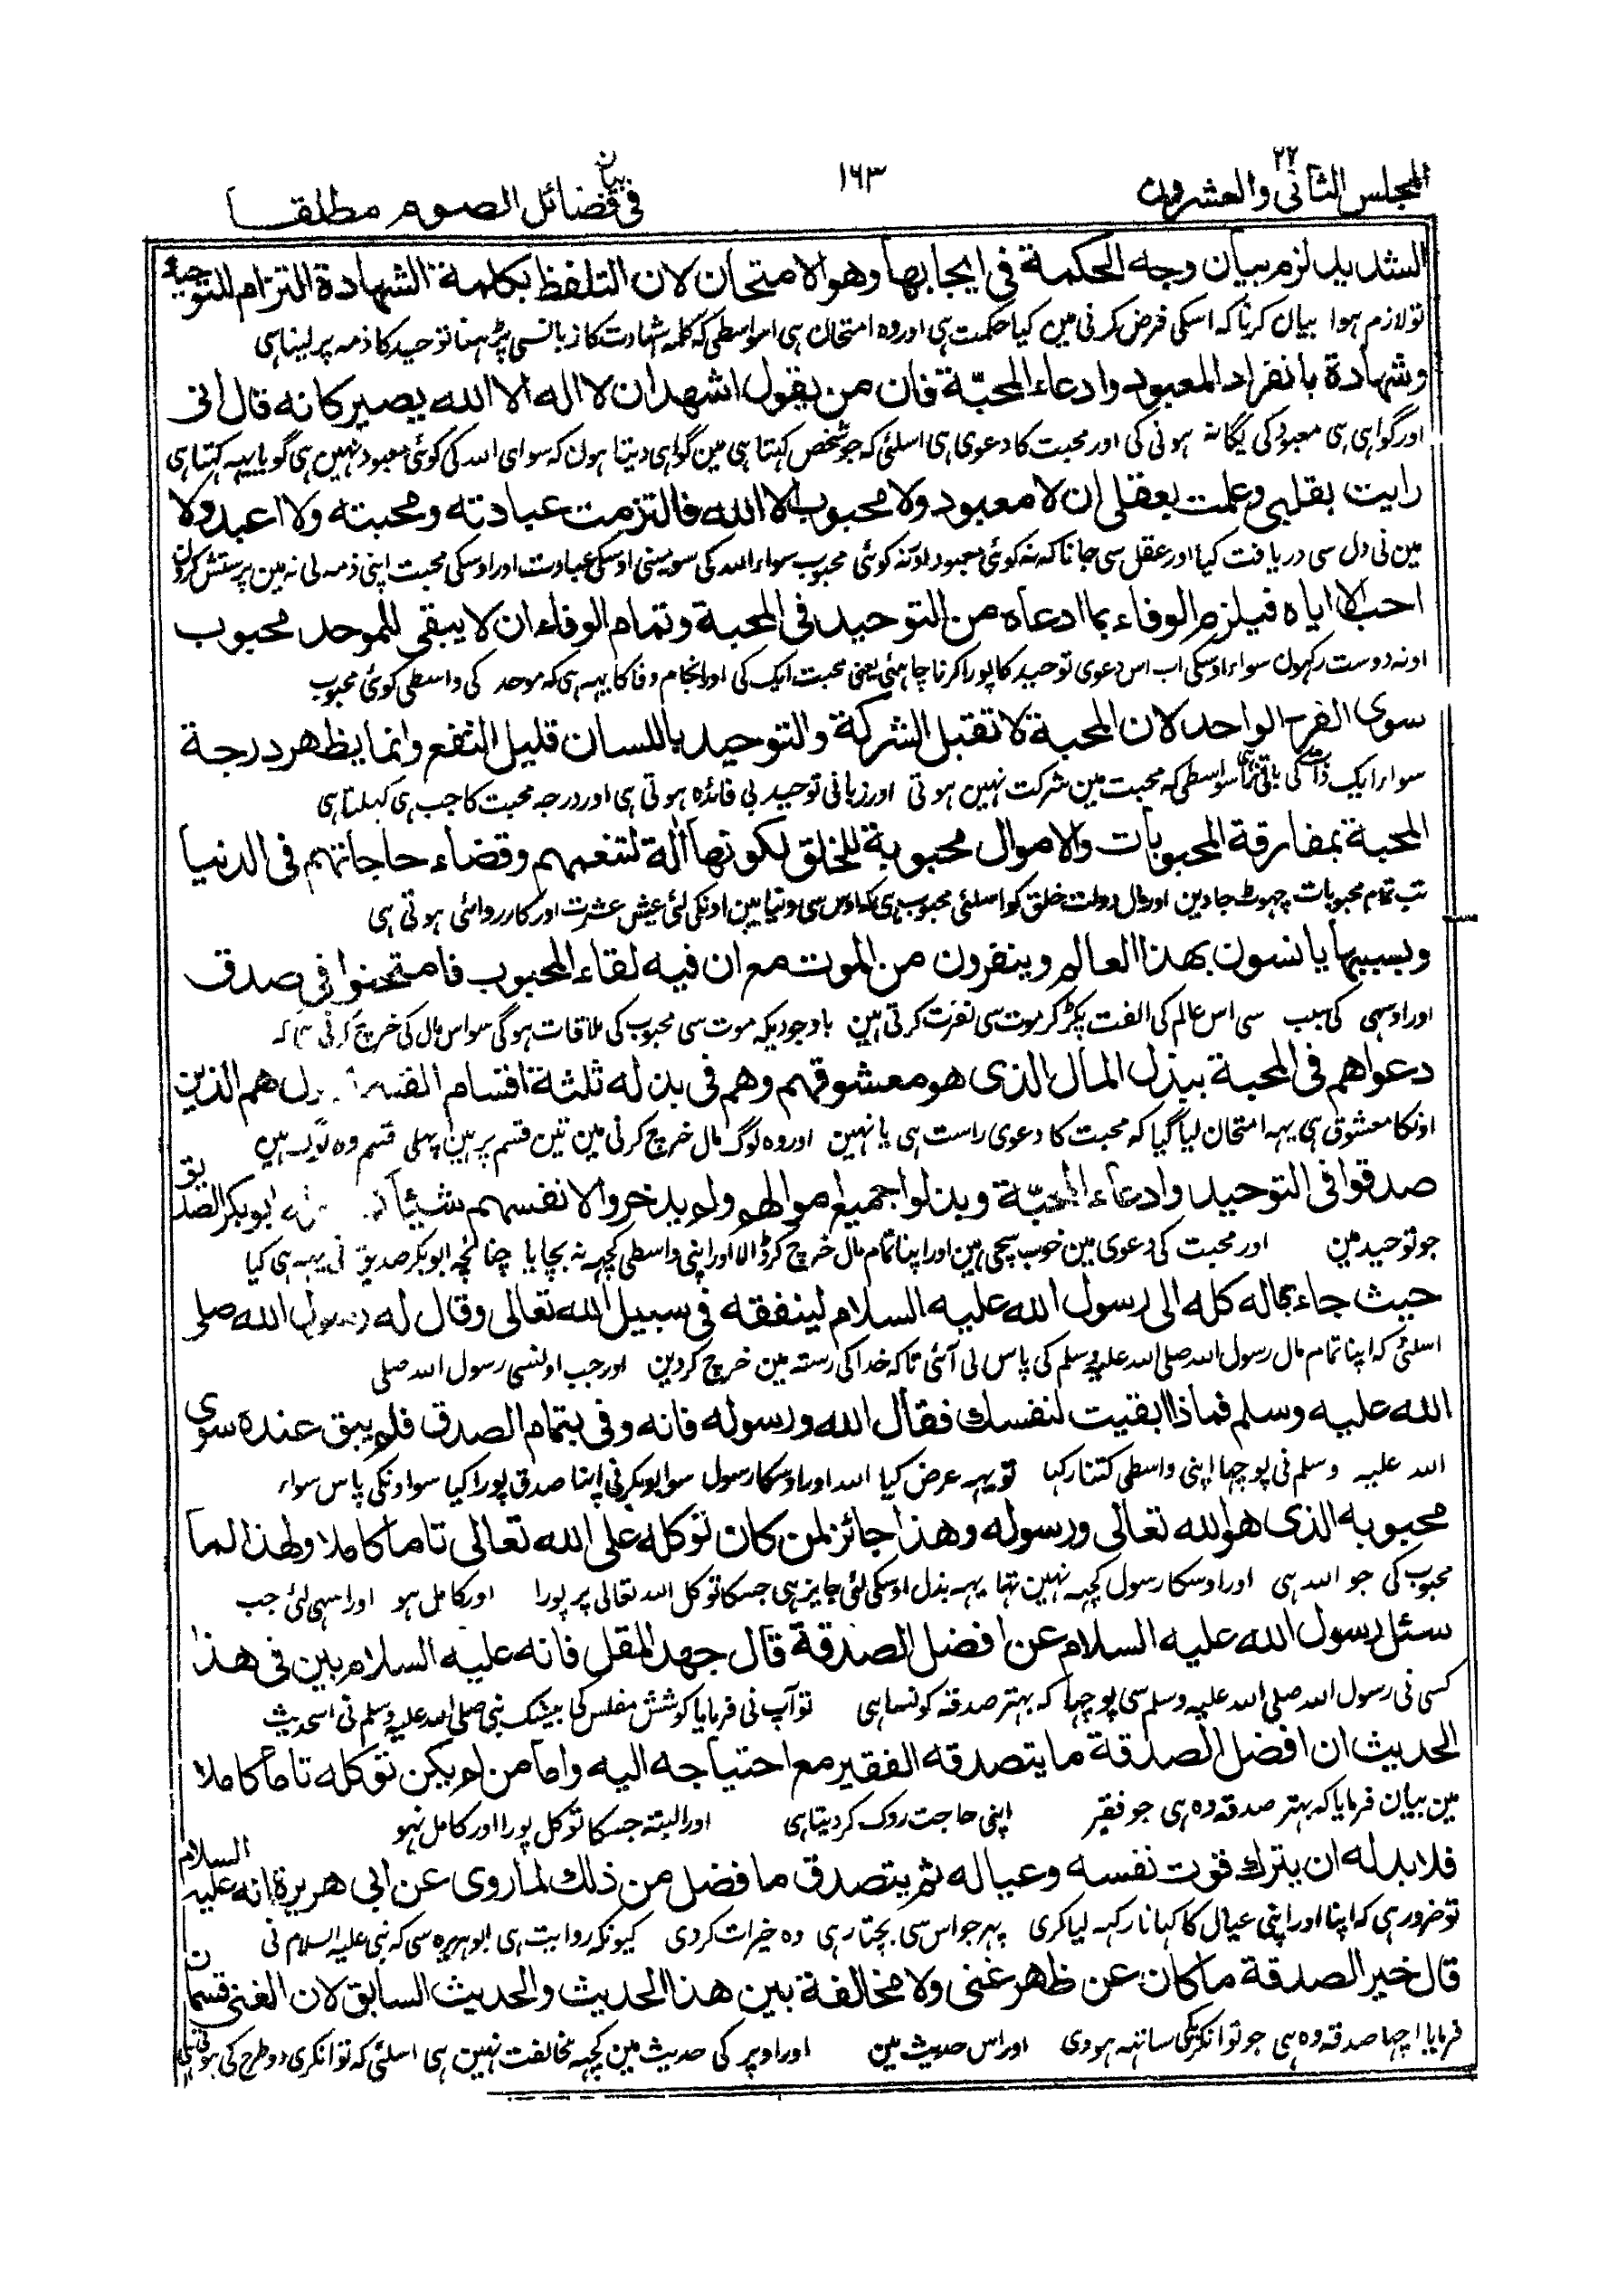 المجلس الثانی والعشرون ٢٢
١٦٣
فی بیان فضائل الصوم مطلقا
الشدید لزم بیان وجه الحکمة فی ایجابها وهو الامتحان لان التلفظ بکلمة الشهادة التزام للتوحید
تو لازم ہوا بیان کرنا کہ اسکی فرض کرنی مین کیا حکمت ہی اور وہ امتحان ہی اسواسطی کہ کلمہ شہادت کا زبانسی پڑہنا توحید کا ذمہ پر لینا ہی
وشهادة بانفراد المعبود وادعاء المحبّة فان من یقول اشهد ان لا اله الا الله یصیر کانه قال انی
اور گواہی ہی معبود کی یگانہ ہونی کی اور محبت کا دعوی ہی اسلئی کہ جو شخص کہتا ہی مین گواہی دیتا ہون کہ سوای اللہ کی کوئی معبود نہین ہی گویا یہہ کہتا ہی
رایت بقلبی وعلمت بعقلی ان لا معبود ولا محبوب الا الله فالتزمت عبادته ومحبته ولا اعبد ولا
مین نی دل سی دریافت کیا اور عقل سی جانا کہ نہ کوئی معبود اور نہ کوئی محبوب سواء اللہ کی سو مینی اوسکی عبادت اور اوسکی محبت اپنی ذمہ لی نہ مین پرستش کرون
احب الا ایاه فیلزم الوفاء بما ادعاه من التوحید فی المحبة وتمام الوفاء ان لا یبقی للموحد محبوب
اور نہ دوست رکہون سواء اوسکی اب اس دعوی توحید کا پورا کرنا چاہئی یعنی محبت ایک کی اور انجام وفا کا یہہ ہی کہ موحد کی واسطی کوئی محبوب
سوی الفرد الواحد لان المحبة لا تقبل الشرکة والتوحید باللسان قلیل النفع وانما یظهر درجة
سواء ایک ذات کی باقی نرہی اسواسطی کہ محبت مین شرکت نہین ہوتی اور زبانی توحید بی فائدہ ہوتی ہی اور درجہ محبت کا جب ہی کہلتا ہی
المحبة بمفارقة المحبوبات والاموال محبوبة للخلق لکونها آلة لتنعمهم وقضاء حاجاتهم فی الدنیا
تب تمام محبوبات چہوٹ جاوین اور مال دولت خلق کو اسلئی محبوب ہی کہ اوس سی دنیا مین اونکی لئی عیش عشرت اور کارروائی ہوتی ہی
وبسببها یانسون بهذا العالم وینفرون من الموت مع ان فیه لقاء المحبوب فامتحنوا فی صدق
اور اوسہی کی سبب سی اس عالم کی الفت پکڑ کر موت سی نفرت کرتی ہین باوجودیکہ موت سی محبوب کی ملاقات ہوگی سو اس مال کی خرچ کرنی سی کہ
دعواهم فی المحبة ببذل المال الذی هو معشوقهم وهم فی بذله ثلثة اقسام القسم الاول هم الذین
اونکا معشوق ہی یہہ امتحان لیا گیا کہ محبت کا دعوی راست ہی یا نہین اور وہ لوگ مال خرچ کرنی مین تین قسم پر ہین پہلی قسم وہ لوگ ہین
صدقوا فی التوحید وادعاء المحبّة وبذلوا جمیع اموالهم ولم یدخروا لانفسهم شیئا ابو بکر الصدیق
جو توحید مین اور محبت کی دعوی مین خوب سچی ہین اور اپنا تمام مال خرچ کر ڈالا اور اپنی واسطی کچہہ نہ بچایا چنانچہ ابو بکر صدیق نی یہہ ہی کیا
حیث جاء بماله کله الی رسول الله علیه السلام لینفقه فی سبیل الله تعالی وقال له رسول الله صلی
اسلئی کہ اپنا تمام مال رسول اللہ صلی اللہ علیہ وسلم کی پاس لی آئی تاکہ خدا کی رستہ مین خرچ کردین اور جب اونسی رسول اللہ صلی
الله علیه وسلم فماذا ابقیت لنفسك فقال الله ورسوله فانه وفی بتمام الصدق فلم یبق عنده سوی
اللہ علیہ وسلم نی پوچہا اپنی واسطی کتنا رکہا تو یہہ عرض کیا اللہ اور اوسکا رسول سو ابوبکر نی اپنا صدق پورا کیا سو اونکی پاس سواء
محبوبه الذی هو الله تعالی ورسوله وهذا جائز لمن کان توکله علی الله تعالی تاما کاملا ولهذا لما
محبوب کی جو اللہ ہی اور اوسکا رسول کچہہ نہین تہا یہہ بذل اوسکی لئی جایز ہی جسکا توکل اللہ تعالی پر پورا اور کامل ہو اور اسہی لئی جب
سئل رسول الله علیه السلام عن افضل الصدقة قال جهد المقل فانه علیه السلام بین فی هذا
کسی نی رسول اللہ صلی اللہ علیہ وسلم سی پوچہا کہ بہتر صدقہ کونسا ہی تو آپ نی فرمایا کوشش مفلس کی بیشک نبی صلی اللہ علیہ وسلم نی اسحدیث
الحدیث ان افضل الصدقة ما یتصدقه الفقیر مع احتیاجه الیه واما من لم یکن توکله تاما کاملا
مین بیان فرمایا کہ بہتر صدقہ وہ ہی جو فقیر اپنی حاجت روک کر دیتا ہی اور البتہ جسکا توکل پورا اور کامل نہو
فلا بد له ان یترك قوت نفسه وعیاله ثم یتصدق ما فضل من ذلك لما روی عن ابی هریرة انه علیه السلام
تو ضرور ہی کہ اپنا اور اپنی عیال کا کہانا رکہہ لیا کری پہر جو اس سی بچتا رہی وہ خیرات کردی کیونکہ روایت ہی ابو ہریرہ سی کہ نبی علیہ السلام نی
قال خیر الصدقة ما کان عن ظهر غنی ولا مخالفة بین هذا الحدیث والحدیث السابق لان الغنی قسمان
فرمایا اچہا صدقہ وہ ہی جو توانگری کی ساتہہ ہووی اور اس حدیث مین اور اوپر کی حدیث مین کچہہ مخالفت نہین ہی اسلئی کہ توانگری دو طرح کی ہوتی ہی